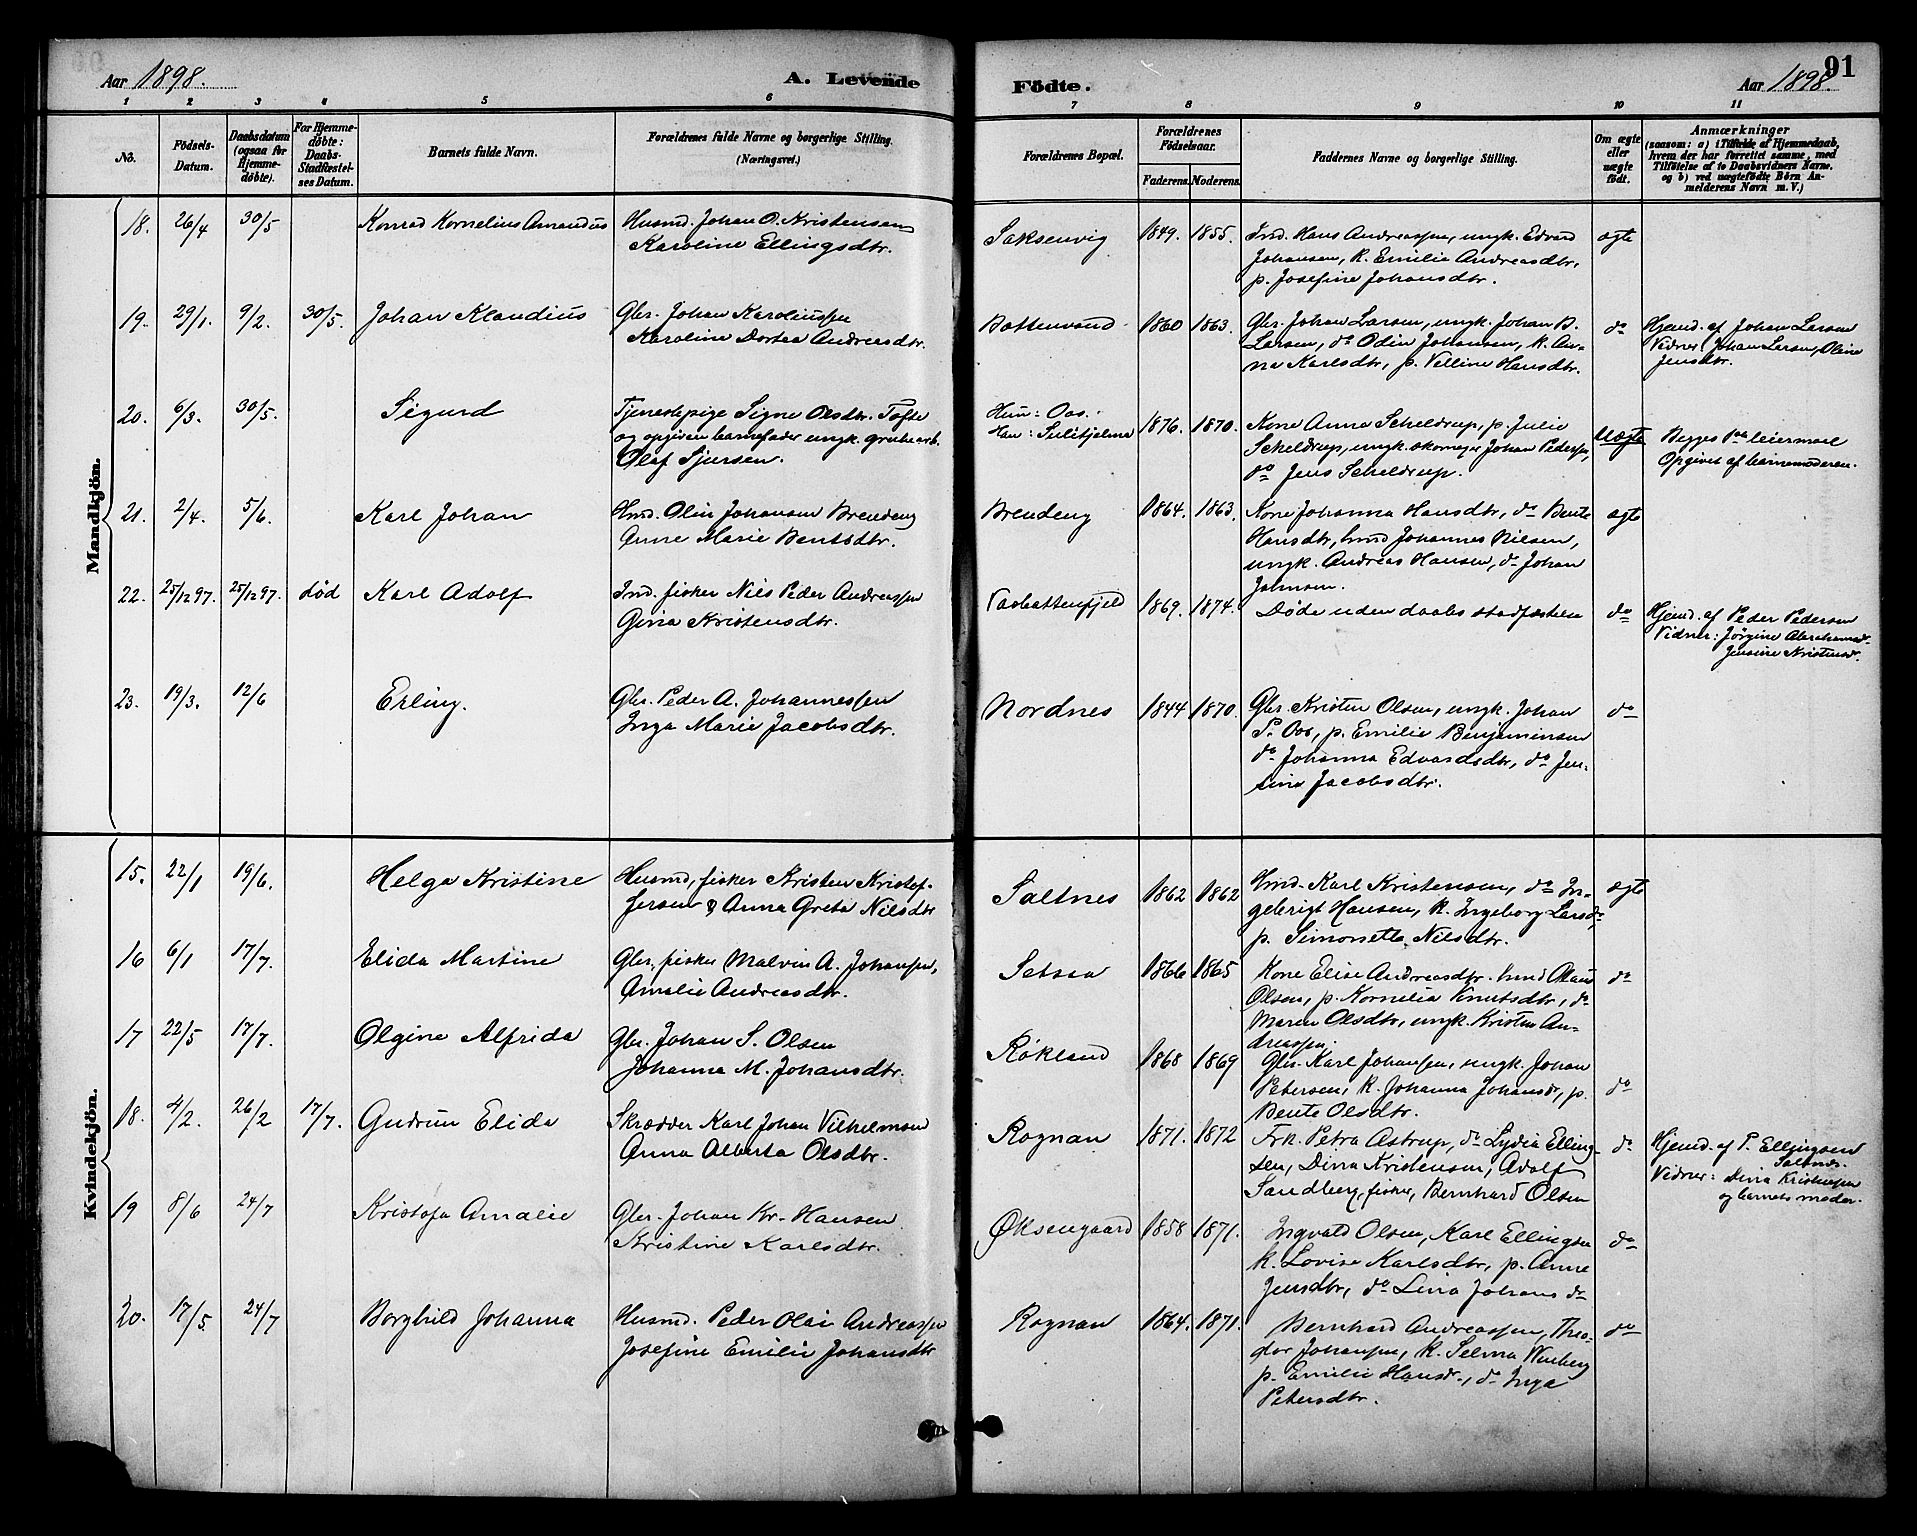 Aar 1898. A. Levende Födte. Aar 1898. 91
1 2 3 4 5 6 7 8 9 10 11
No. Födsels-Datum. Daabsdatum (ogsaa for Hjemme-døbte). For Hjemme-døbte: Daabs-Stadfæstel-ses Datum. Barnets fulde Navn. Forældrenes fulde Navne og borgerlige Stilling. (Næringsvei.) Forældrenes Bopæl. Forældrenes Födselsaar. Faderens. Moderens. Faddernes Navne og borgerlige Stilling. Om ægte eller uægte födt. Anmærkninger
(saasom: a) i Tilfælde af Hjemmedaab,
hvem der har forrettet samme, med
Tilföielse af to Daabsvidners Navne.
og b) ved uægtefödte Börn An-
melderens Navn m. V.)
Mandkjön.
18. 26/4 30/5 Konrad Kornelius Amandus Husmd. Johan O. Kristensen
Karoline Ellingsdtr. Saksenvig 1849. 1855. Ind. Hans Andreassen, ungk. Edvard
Johansen, k. Emilie Andreasdtr,
p. Josefine Johansdtr. ægte
19. 29/1. 9/2. 30/5. Johan Klaudius Gbr. Johan Karoliussen
Karoline Dortea Andreasdtr. Bottenvand 1860 1863. Gbr. Johan Larsen, ungk. Johan B.
Larsen, do Odin Johansen, k. An-
na Karlsdtr, p. Velline Hansdtr. do Hjemd. af Johan Larsen
Vidner: Johan Larsen, Oline
Jensdtr.
20. 6/3. 30/5. Sigurd Tjenestepige Signe Olsdtr. Tofte
og opgiven barnefader ungk. grubearb.
Olaf Sjursen. Hun: Oos.
Han: Sulitjelma 1876. 1870. Kone Anna Scheldrup, p. Julie
Scheldrup, ungk. skomager Johan Pedersen,
do Jens Scheldrup. Uægte Begges 1ste leiermaal
Opgivet af barnemoderen.
21. 2/4. 5/6. Karl Johan Hmd. Olin Johansen Brendeng
Anne Marie Bentsdtr. Brendeng 1864. 1863. Kone Johanna Hansdtr, do Bente
Hansdtr, hmd Johannes Nilsen,
ungk. Andreas Hansen, do Johan
Johnsen. ægte
22. 25/12 97. 25/12 97. død Karl Adolf Ind. fisker Nils Peder Andreassen
Gina Kristensdtr. Vasbottenfjeld 1869. 1874. Døde uden daabs stadfæstelse do Hjemd. af Peder Pedersen
Vidner: Jørgine Abrahamsd.
Jensine Kristensd.
23. 19/3. 12/6 Erling. Gbr. Peder A. Johannessen
Inga Marie Jacobsdtr. Nordnes 1844 1870. Gbr. Kristen Olsen, ungk. Johan
P. Oos, p. Emilie Benjaminsen
do Johanna Edvardsdtr, do Jen-
sine Jacobsdtr. do
Kvindekjön.
15. 22/1 19/6. Helga Kristine Husmd, fisker Kristen Kristof-
fersen & Anna Greta Nilsdtr Saltnes 1862 1862 Hmd. Karl Kristensen, do In-
gebrigt Hansen, k. Ingeborg Larsdtr,
p. Simonette Nilsdtr. ægte
16 6/1 17/7. Elida Martine Gbr. fisker Malvin A. Johansen,
Amalie Andreasdtr. Setsaa 1866 1865 Kone Elise Andreasdtr. hmd
Olsen, p. Kornelia Knutsdtr, do
Maren Olsdtr, ungk. Kristen An-
dreassen. do
17 22/5 17/7. Olgine Alfrida Gbr. Johan S. Olsen
Johanna M. Johansdtr. Røkland 1868 1869 Gbr. Karl Johansen, ungk. Johan
Petersen, k. Johanna Johansd, p.
Bente Olsdtr. do
18. 4/2. 26/2 17/7. Gudrun Elida Skrædder Karl Johan Vilhelmsen
Anna Alberta Olsdtr. Rognan 1871. 1872 Frk. Petra Astrup, do Lydia Elling-
sen, Dina Kristensen, Adolf
Sandberg, fisker, Bernhard Olsen do Hjemd. af P. Ellingsen
Saltnes.
Vidner: Dina Kristensen
og barnets moder.
19 8/6 24/7 Kristofa Amalie Gbr. Johan Kr. Hansen
Kristine Karlsdtr. Øksengaard 1858 1871. Ingvald Olsen, Karl Ellingsen
k. Lovise Karlsdtr, p. Anne
Jensdtr, do Lina Johans do do
20. 17/5. 24/7 Borghild Johanna Husmd. Peder Olai Andreassen
Josefine Emilie Johansdtr Rognan 1864. 1871. Bernhard Andreassen, Theo-
dor Johansen, k. Selma Winberg
p. Emilie Hansdr., do Inga
Petersdtr. do